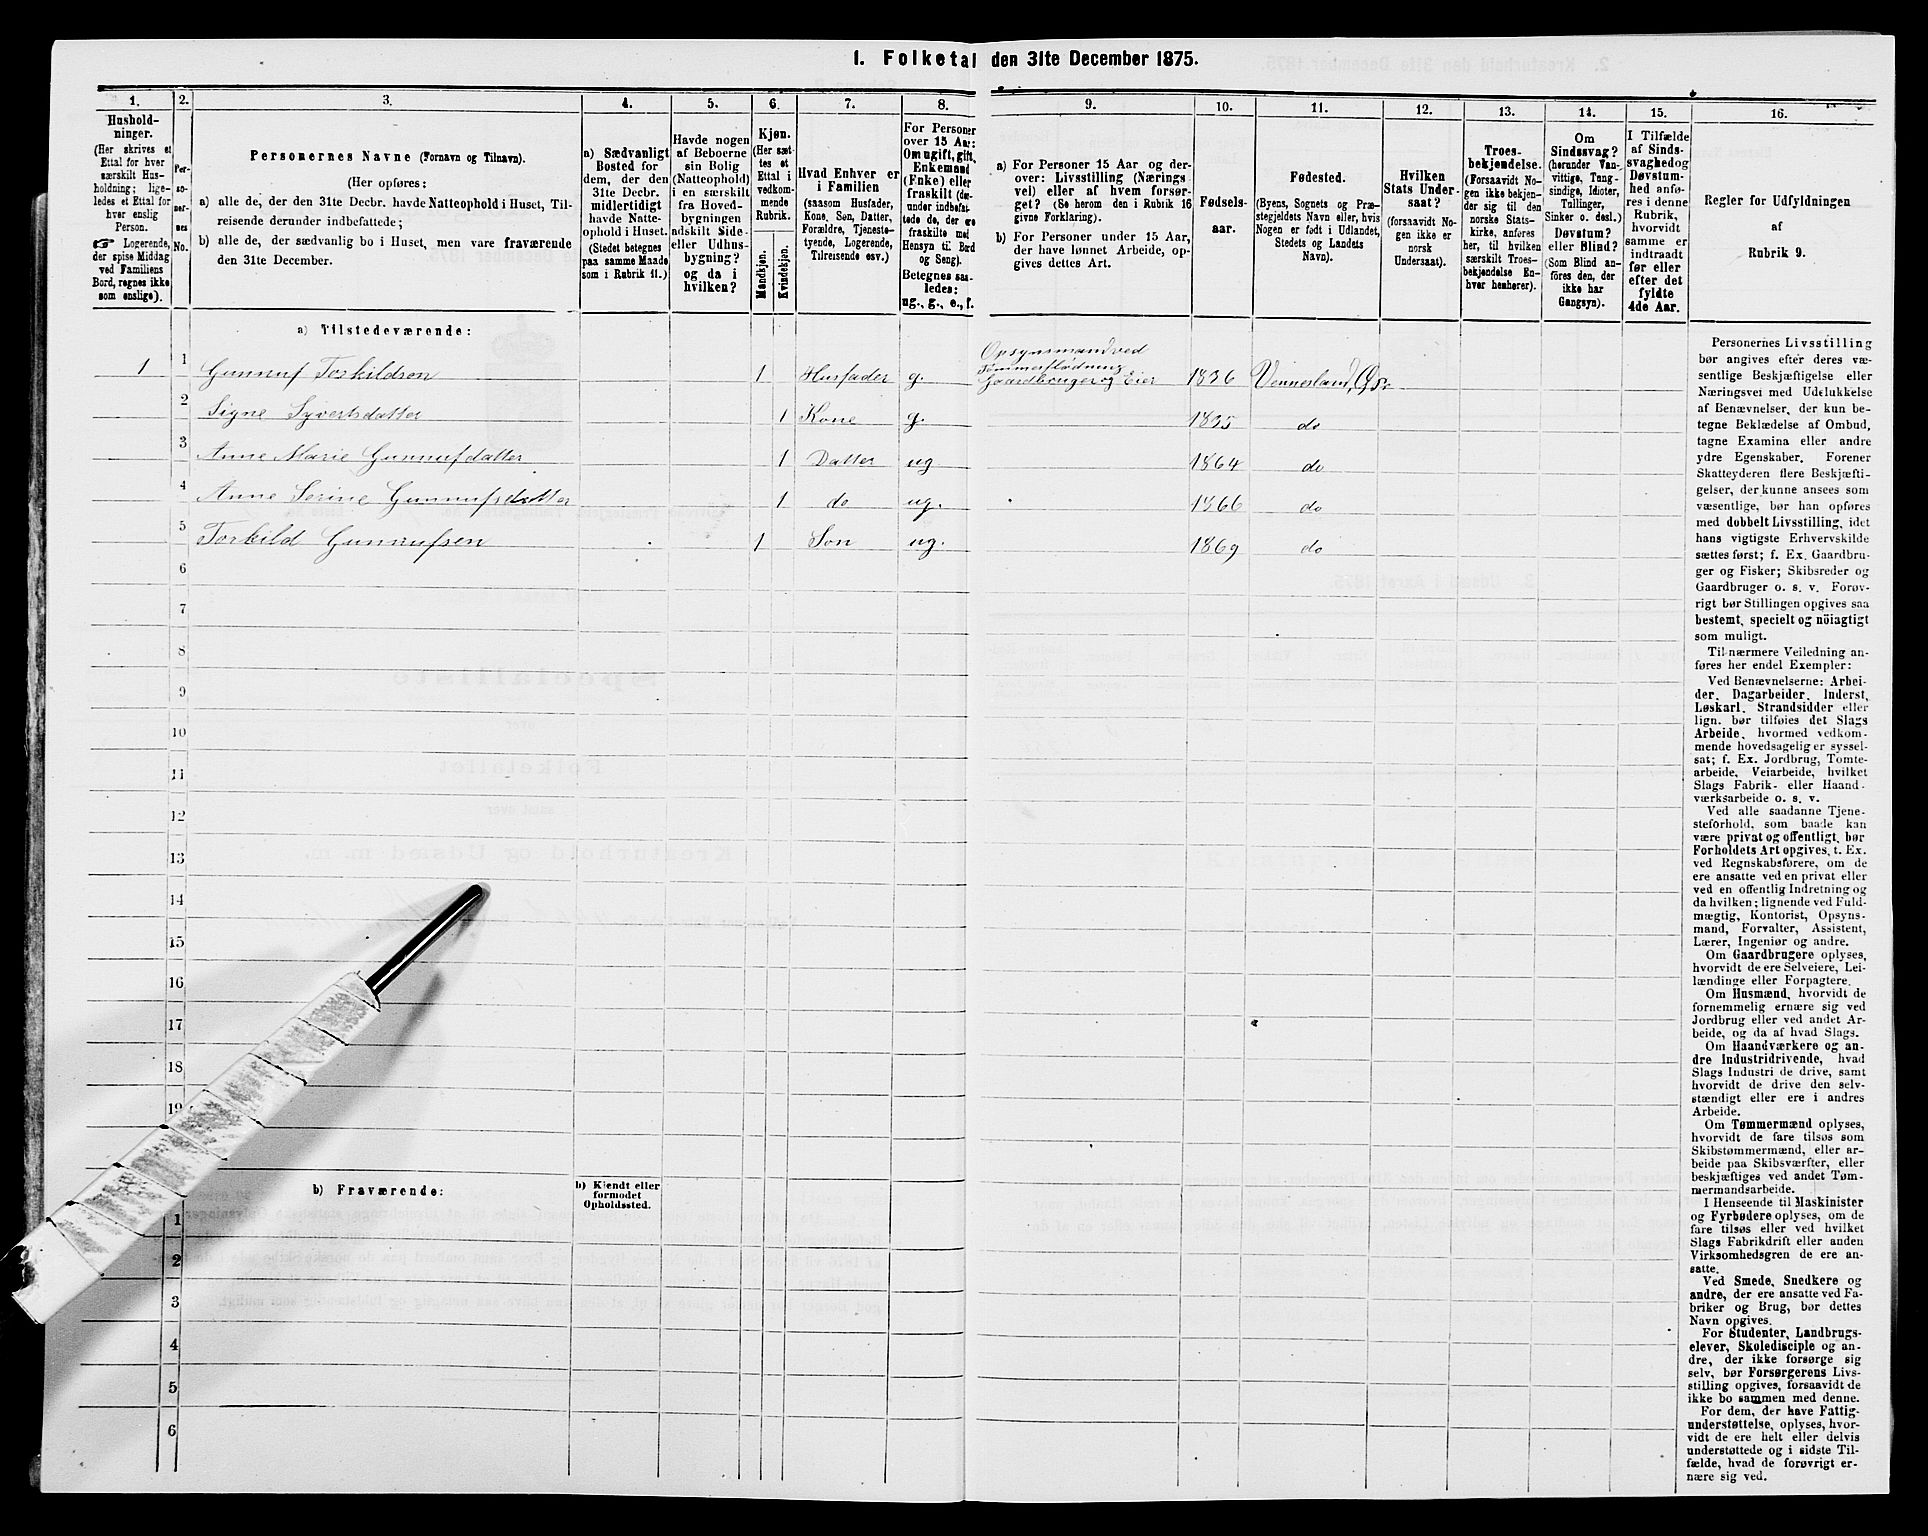 1. Folketal den 31te December 1875.
1.
2.
3.
4.
5.
6.
7.
8.
9.
10.
11.
12.
13.
14.
15.
16.
Hushold-
ninger.
(Her skrives et
Ettal for hver
særskilt Hus-
holdning; lige-
ledes et Ettal for
hver enslig
Person.
☞ Logerende,
der spise Middag
ved Familiens
Bord, regnes ikke
som enslige).
Per-
so-
ner-
nes
No.
Personernes Navne (Fornavn og Tilnavn).
(Her opføres:
a) alle de, der den 31te Decbr. havde Natteophold i Huset, Til-
reisende derunder indbefattede;
b) alle de, der sædvanlig bo i Huset, men vare fraværende
den 31te December.
a) Sædvanligt
Bosted for
dem, der den
31te Decbr.
midlertidigt
havde Natte-
ophold i Huset.
(Stedet betegnes
paa samme Maade
som i Rubrik 11.)
Havde nogen
af Beboerne
sin Bolig
(Natteophold)
i en særskilt
fra Hoved-
bygningen
adskilt Side-
eller Udhus-
bygning?
og da i
hvilken?
Kjøn.
(Her sæt-
tes et
Ettal i
vedkom-
mende
Rubrik.
Mandkjøn.
Kvindekjøn.
Hvad Enhver er
i Familien
(saasom Husfader,
Kone, Søn, Datter,
Forældre, Tjeneste-
tyende, Logerende,
Tilreisende osv.)
For Personer
over 15 Aar:
Om ugift, gift,
Enkemand
(Enke) eller
fraskilt (der-
under indbefat-
tede de, der ere
fraskilte med
Hensyn til Bord
og Seng).
Betegnes saa-
ledes:
ug., g., e., f.
a) For Personer 15 Aar og der-
over: Livsstilling (Nærings-
vei) eller af hvem forsør-
get? (Se herom den i Rubrik 16
givne Forklaring).
b) For Personer under 15 Aar,
der have lønnet Arbeide, op-
gives dettes Art.
Fødsels-
aar.
Fødested.
(Byens, Sognets og Præ-
stegjeldets Navn eller, hvis
Nogen er født i Udlandet,
Stedets og Landets
Navn).
Hvilken
Stats Under-
saat?
(forsaavidt No-
gen ikke er
norsk
Undersaat).
Troes-
bekjendelse.
(Forsaavidt No-
gen ikke bekjen-
der sig til den
norske Stats-
kirke, anføres
her, til hvilken
særskilt Troes-
bekjendelse En-
hver henhører).
Om
Sindssvag?
(herunder Van-
vittige, Tung-
sindige, Idioter,
Tullinger,
Sinker o. desl.)
Døvstum?
eller Blind?
(Som Blind an-
føres den, der
ikke har
Gangsyn).
I Tilfælde
af Sinds-
svaghed og
Døvstum-
hed anfø-
res i denne
Rubrik,
hvorvidt
samme er
indtraadt
før eller
efter det
fyldte
4de Aar.
Regler for Udfyldningen
af
Rubrik 9.
a) Tilstedeværende:
Opsynsmand ved
Tømmerflødning
1 1 Gunnuf Torkildsen 1 Husfader g. Gaardbruger og Eier 1836 Vennesland, Øv.
2 Signe Syvertsdatter 1 Kone g. 1835 do
3 Anne Marie Gunnufdatter 1 Datter ug 1864 do
4 Anne Serine Gunnufsdatter 1 do ug. 1866 do
5 Torkild Gunnufsen 1 Søn ug. 1869 do
6
7
8
9
10
11
12
13
14
15
16
17
18
19
b) Fraværende:
b) Kjendt eller
formodet
Opholdssted.
1
2
3
4
5
6
Personernes Livsstilling
bør angives efter deres væ-
sentlige Beskjæftigelse eller
Næringsvei med Udelukkelse
af Benævnelser, der kun be-
tegne Beklædelse af Ombud,
tagne Examina eller andre
ydre Egenskaber. Forener
Skatteyderen flere Beskjæfti-
gelser, der kunne ansees som
væsentlige, bør han opføres
med dobbelt Livsstilling, idet
hans vigtigste Erhvervskilde
sættes først; f. Ex. Gaardbru-
ger og Fisker; Skibsreder og
Gaardbruger o. s. v. Forøv-
rigt bør Stillingen opgives saa
bestemt, specielt og nöiagtigt
som muligt.
Til nærmere Veiledning an-
føres her endel Exempler:
Ved Benævnelserne: Arbei-
der, Dagarbeider, Inderst,
Løskarl, Strandsidder eller
lign. bør tilføies det Slags
Arbeide, hvormed vedkom-
mende hovedsagelig er syssel-
sat; f. Ex. Jordbrug, Tomte-
arbeide, Veiarbeide, hvilket
Slags Fabrik- eller Haand-
værksarbeide o. s. v.
Ved alle saadanne Tjene-
steforhold, som baade kan
være privat og offentligt, bør
Forholdets Art opgives, t. Ex.
ved Regnskabsførere, om de
ere ansatte ved en privat eller
ved en offentlig Indretning og
da hvilken; lignende ved Fuld-
mægtig, Kontorist, Opsyns-
mand, Forvalter, Assistent,
Lærer, Ingeniør og andre.
Om Gaardbrugere oplyses,
hvorvidt de ere Selveiere, Lei-
lændinge eller Forpagtere.
Om Husmænd, hvorvidt de
fornemmelig ernære sig ved
Jordbrug eller ved andet Ar-
beide, og da af hvad Slags.
Om Haandværkere og an-
dre Industridrivende, hvad
Slags Industri de drive, samt
hvorvidt de drive den selv-
stændigt eller ere i andres
Arbeide.
Om Tømmermænd oplyses,
hvorvidt de fare tilsøs som
Skibstømmermænd, eller ar-
beide paa Skibsværfter, eller
beskjæftiges ved andet Tøm-
mermandsarbeide.
I Henseende til Maskinister
og Fyrbødere oplyses, om de
fare tilsøs eller ved hvilket
Slags Fabrikdrift eller anden
Virksomhedsgren de ere an-
satte.
Ved Smede, Snedkere og
andre, der ere ansatte ved Fa-
briker og Brug, bør dettes
Navn opgives.
For Studenter, Landbrugs-
elever, Skoledisciple og an-
dre, der ikke forsørge sig
selv, bør Forsørgerens Livs-
stilling opgives, forsaavidt de
ikke bo sammen med denne.
For dem, der have Fattig-
understøttelse, oplyses, hvor-
vidt de ere helt eller delvis
understøttede og i sidste Til-
fælde, hvad de forøvrigt er-
nære sig ved.